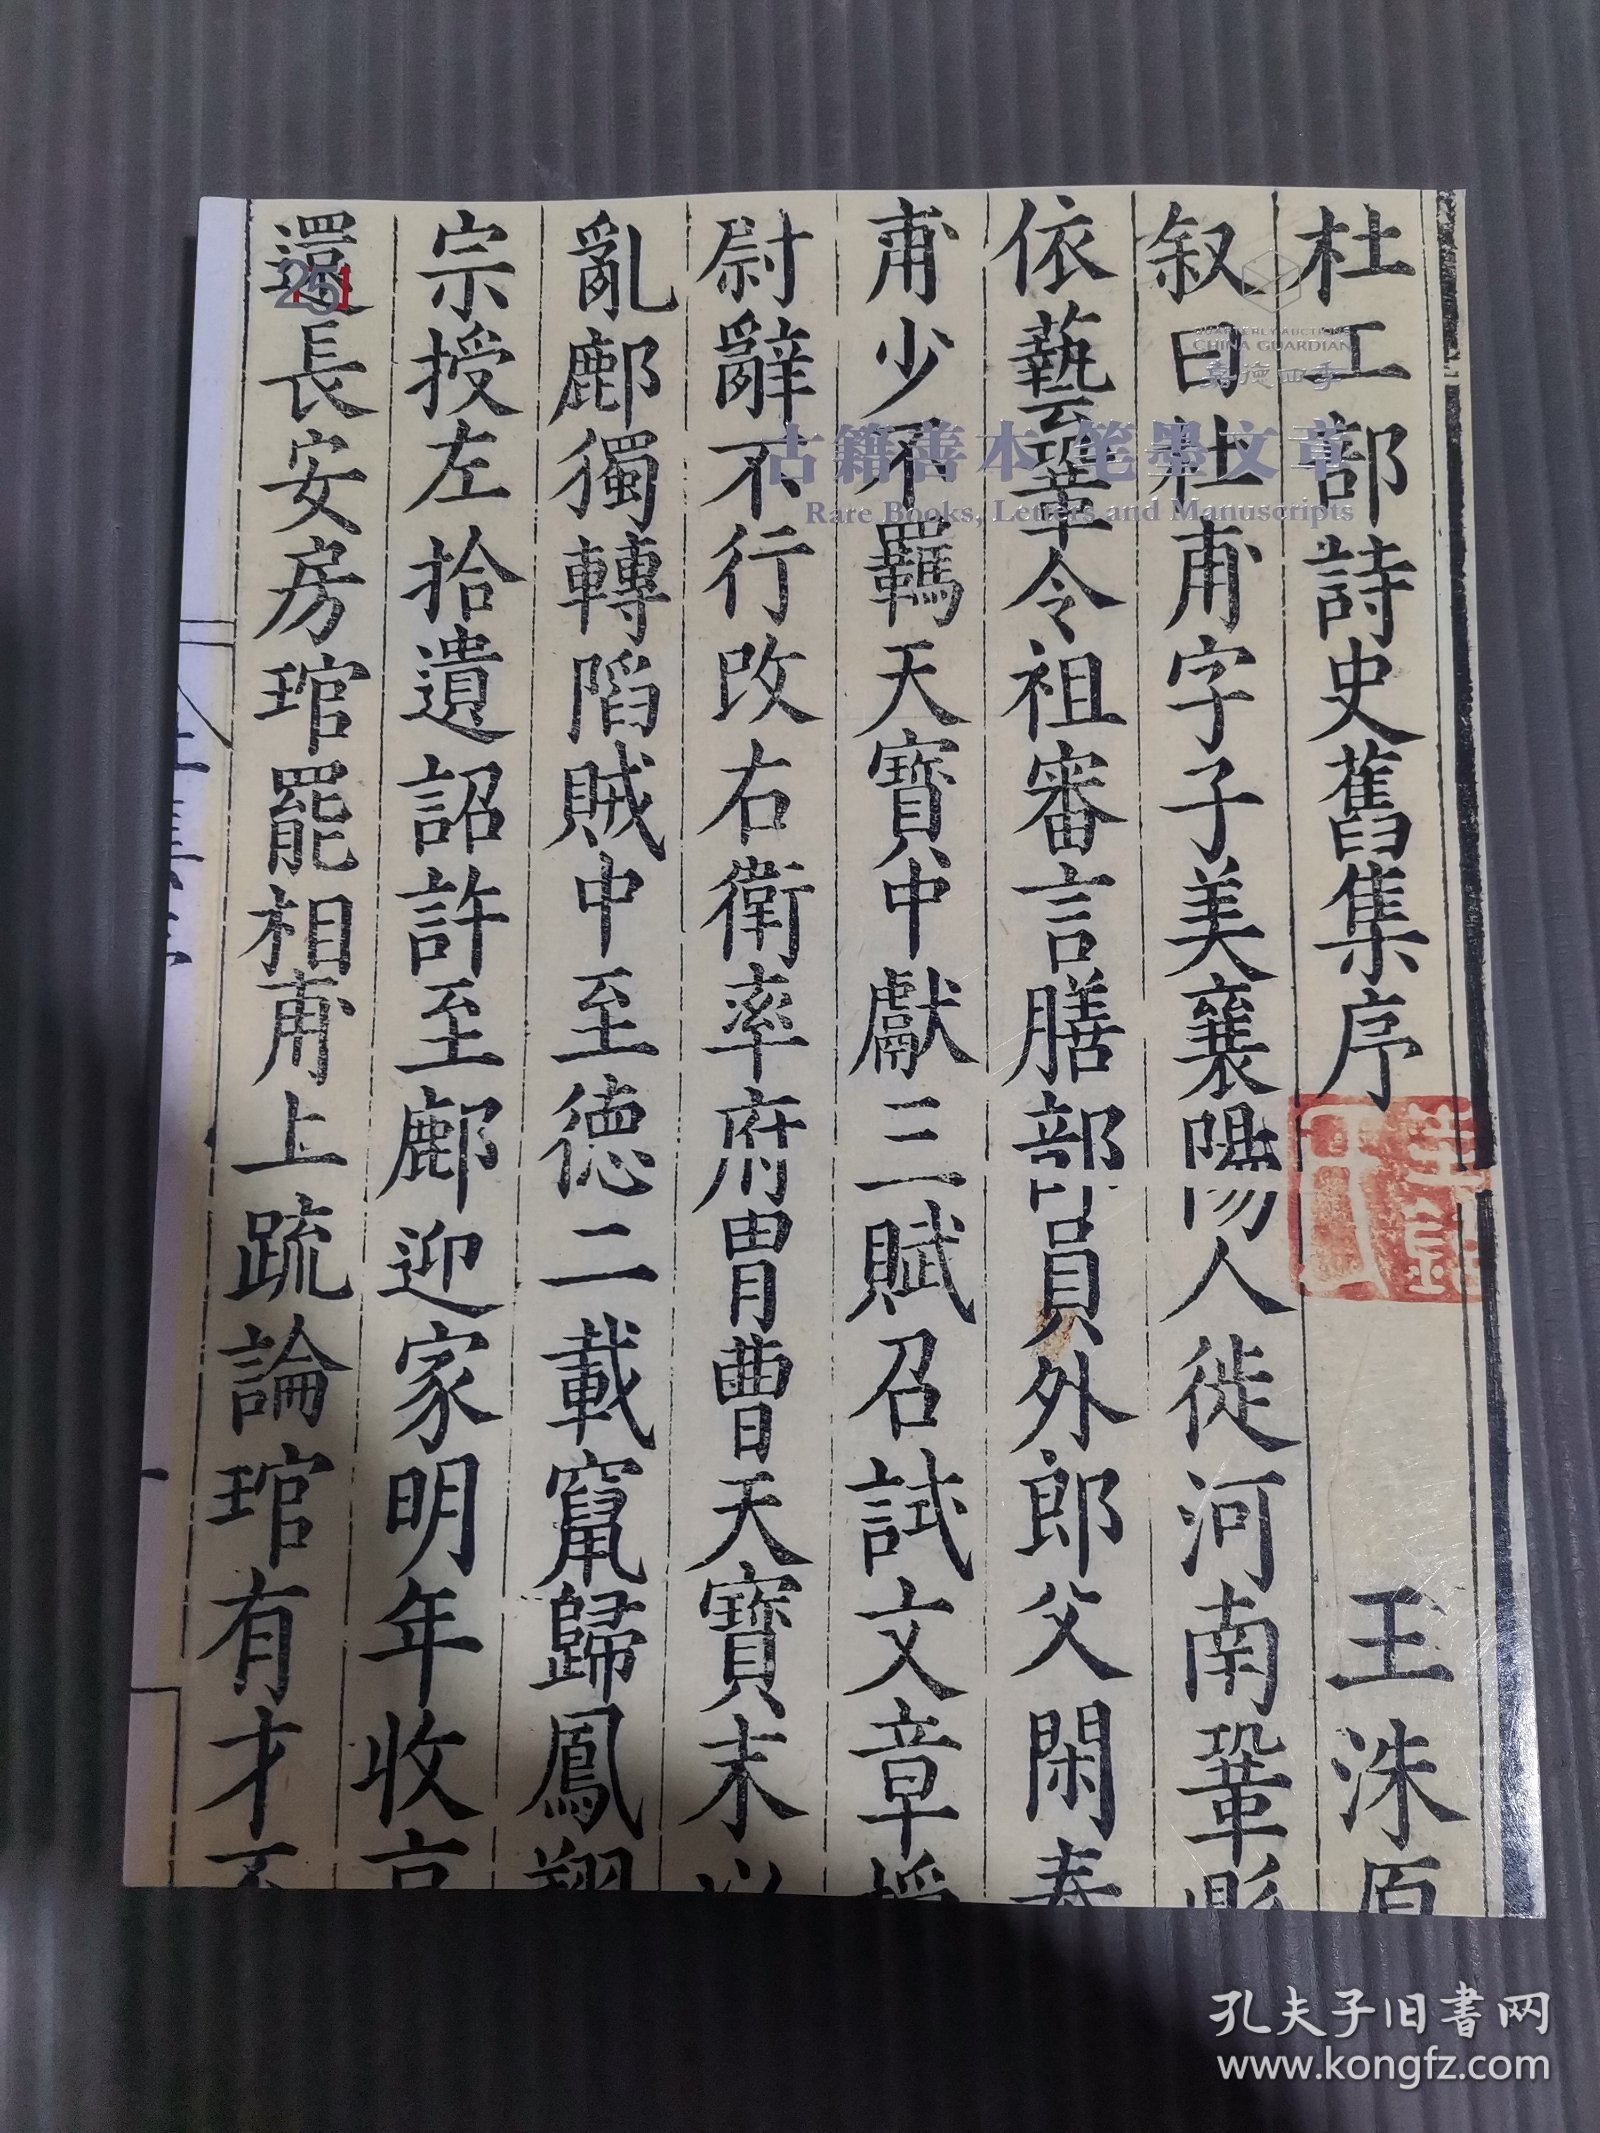 杜工部詩史舊集序
王洙原
叙曰杜甫字子美襄陽人徙河南鞏縣
依藝鞏令祖審言膳部員外郎父閑奉
甫少不羈天寶中獻三賦召試文章授
尉辭不行改右衛率府胄曹天寶末以
亂鄜獨轉陷賊中至德二載竄歸鳳翔
宗授左拾遺詔許至鄜迎家明年收京
還長安房琯罷相甫上疏論琯有才不
QUARTERLY AUCTIONS
CHINA GUARDIAN
嘉德四季
古籍善本 笔墨文章
Rare Books, Letters and Manuscripts
孔夫子旧书网
www.kongfz.com